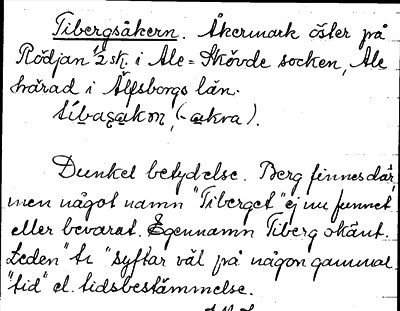 Tibergsåkern. Åkermark öster på
Rödjan ½ sk. i Ale=Skövde socken, Ale
härad i Älfsborgs län.
(-akra).
Dunkel betydelse. Berg finnes där,
men något namn "Tiberget" ej nu funnet
eller bevarat. Egennamn Tiberg okänt.
Leden "ti" syftar väl på någon gammal
"tid" el. tidsbestämmelse.